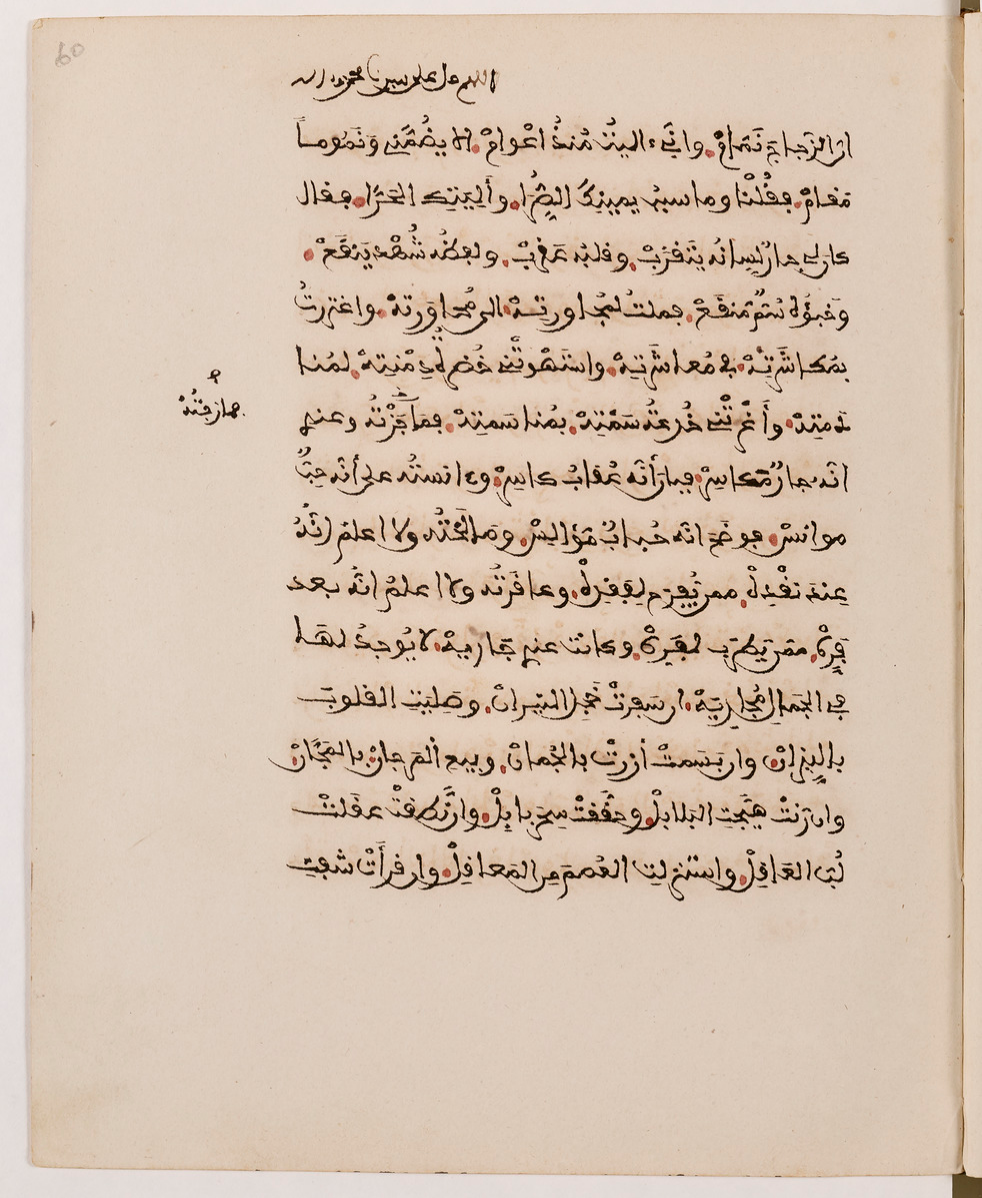 اللهم صل على سيدنا محمد وءاله
ان الزجاج نَمّامْ. وانيّ ءاليتُ مُنذُ اعْوامْ. الا يضُمَّني وَنَمُوماً
مَقامْ. فقُلْنا وما سببُ يمينِكَ الصِّرَّا. وأَليّتِك الحَرَّا. فقال
كان لي جارٌ لِسانه يتَقرَّبْ. وقلبُه عَقربْ. ولفظُه شُهْدٌ يَنقَعْ.
وَخَبؤُه سُمٌّ مُنقَعْ. فملتُ لمُجاورتِهْ. الى مُحاوَرتهْ. واغتررتُ
بمُكاشَرَتِهْ. في مُعاشَرَتِهْ. واستَهْوتْني خُضرةُ دِمْنتِهْ. لمُنا
دَمتِهْ. وأَغْرتْني خُدعةُ سَمْتِهْ. بمُناسَمتِهْ. فمازجْتُه وعندي
انّه جارٌ مُكاسِرْ. فبان أنّه عُقابٌ كاسِرْ. وءانستُه على أنّه حِبٌّ
موانسْ. فوضَح انّه حُبابٌ مُوالِسْ. ومَالَحْتُه ولا اعلم انّهُ
عِندَ نقْدِهْ. ممن يُفرَح لفَقدِهْ. وعاقَرتُه ولا اعلمُ انّه بعد
فَرِّهْ. ممّن يَطرَب لمفَرِّهْ. وكانت عندي جَاريهْ. لا يُوجدُ لهَا
في الجَمالِ مُجارِيَهْ. ان سَفرتْ خَجل النّيرانْ. وصَلِيَت القلوبُ
بالنِّيرَانْ. وان بَسَمتْ أزرتْ بالجُمانْ. وبيع المَرجانْ بالمَجَّانْ
وان رَنتْ هَيَّجَتِ البَلابلْ. وحقَّقتْ سِحرَ بابِلْ. وان نَّطقتْ عقَلتْ
لُبَّ العَاقِلْ. واستنزلتِ العُصمَ مِن المَعاقِلْ. وان قرأَتْ شفَتِ
مازجتُهْ
60